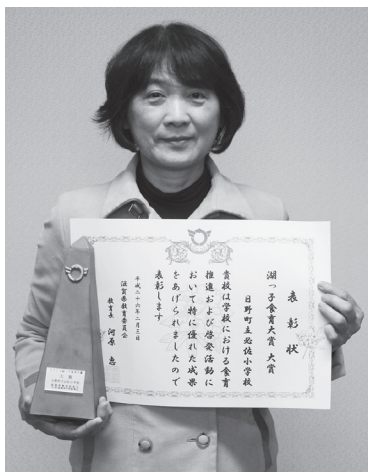 表彰状
湖っ子食育大賞 大賞
日野町立必佐小学校
貴校は学校における食育
推進および啓発活動に
おいて特に優れた成果
をあげられましたので
表彰します
平成二十六年二月三日
滋賀県教育委員会
教育長 河原 恵
大賞